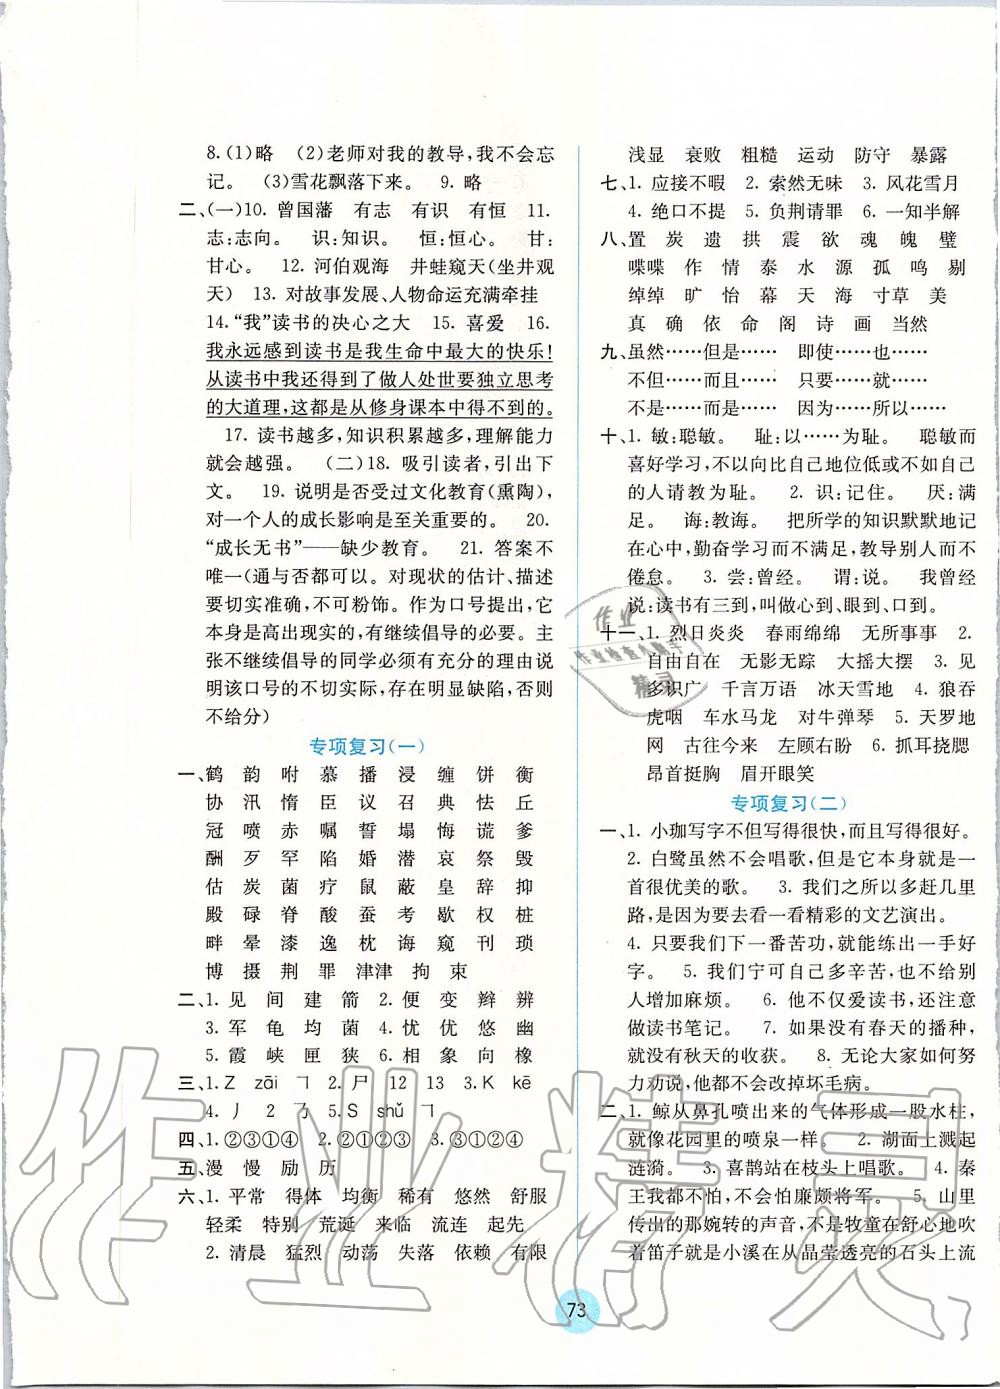 8.(1)略 (2)老师对我的教导,我不会忘
记。 (3)雪花飘落下来。 9. 略
二、(一)10. 曾国藩 有志 有识 有恒 11.
志:志向。 识:知识。 恒:恒心。 甘:
甘心。 12. 河伯观海 井蛙窥天(坐井观
天) 13. 对故事发展、人物命运充满牵挂
14.“我”读书的决心之大 15. 喜爱 16.
我永远感到读书是我生命中最大的快乐!
从读书中我还得到了做人处世要独立思考
的大道理,这都是从修身课本中得不到的。
17. 读书越多,知识积累越多,理解能力
就会越强。 (二)18. 吸引读者,引出下
文。 19. 说明是否受过文化教育(熏陶),
对一个人的成长影响是至关重要的。 20.
“成长无书”——缺少教育。 21. 答案不
唯一(通与否都可以。对现状的估计、描述
要切实准确,不可粉饰。作为口号提出,它
本身是高出现实的,有继续倡导的必要。主
张不继续倡导的同学必须有充足的理由说
明该口号的不切实际,存在明显缺陷,否则
不给分)
专项复习(一)
一、鹤 韵 咐 慕 播 浸 缠 饼 衡
协 汛 惰 臣 议 召 典 怯 丘
冠 喷 赤 嘱 誓 塌 悔 谎 爹
酬 歹 罕 陷 婚 潜 哀 祭 毁
估 炭 菌 疗 鼠 蔽 皇 辞 抑
殿 碌 脊 酸 蚕 考 歇 权 桩
畔 晕 漆 逸 枕 海 窥 刊 琐
博 摄 荆 罪 津津 拘 束
二、1. 见 间 建 箭 2. 便 变 辫 辨
3. 军 龟 均 菌 4. 忧 优 悠 幽
5. 霞 峡 匣 狭 6. 相 象 向 橡
三、1. Z zāi ㇕ 2. 尸 12 13 3. K kē
4. 丿 2 ㇋ 5. S shǔ ㇕
四、1. ②③①④ 2. ④①②③ 3. ③①②④
五、漫 慢 励 历
六、1. 平常 得体 均衡 稀有 悠然 舒服
轻柔 特别 荒诞 来临 流连 起先
2. 清晨 猛烈 动荡 失落 依赖 有限
浅显 衰败 粗糙 运动 防守 暴露
七、1. 应接不暇 2. 索然无味 3. 风花雪月
4. 绝口不提 5. 负荆请罪 6. 一知半解
八、置 炭 遗 拱 震 欲 魂 魄 璧
喋喋 作 情 泰 水 源 孤 鸣 剔
绰绰 旷 怡 幕 天 海 寸草 美
真 确 依 命 阁 诗 画 当然
九、虽然……但是…… 即使……也……
不但……而且…… 只要……就……
不是……而是…… 因为……所以……
十、1. 敏:聪敏。 耻:以……为耻。 聪敏而
喜好学习,不以向比自己地位低或不如自己
的人请教为耻。 2. 识:记住。 厌:满
足。 诲:教诲。 把所学的知识默默地记
在心中,勤奋学习而不满足,教导别人而不
倦怠。 3. 尝:曾经。 谓:说。 我曾经
说:读书有三到,叫做心到、眼到、口到。
十一、1. 烈日炎炎 春雨绵绵 无所事事 2.
自由自在 无影无踪 大摇大摆 3. 见
多识广 千言万语 冰天雪地 4. 狼吞
虎咽 车水马龙 对牛弹琴 5. 天罗地
网 古往今来 左顾右盼 6. 抓耳挠腮
昂首挺胸 眉开眼笑
专项复习(二)
一、1. 小珈写字不但写得很快,而且写得很好。
2. 白鹭虽然不会唱歌,但它本身就是一
首很优美的歌。 3. 我们之所以多赶几里
路,是因为要去看一看精彩的文艺演出。
4. 只要我们下一番苦功,就能练出一手好
字。 5. 我们宁可自己多辛苦,也不给别
人增加麻烦。 6. 他不仅爱读书,还注意
做读书笔记。 7. 如果没有春天的播种,
就没有秋天的收获。 8. 无论大家如何努
力劝说,他都不会改掉坏毛病。
二、1. 鲸从鼻孔喷出来的气体形成一股水柱,
就像花园里的喷泉一样。 2. 湖面上溅起
涟漪。 3. 喜鹊站在枝头上唱歌。 4. 秦
王我都不怕,不会怕廉颇将军。 5. 山里
传出的那婉转的声音,不是牧童在舒心地吹
着笛子就是小溪在从晶莹透亮的石头上流
73
作业
作业检查小助手
精灵
作业精灵